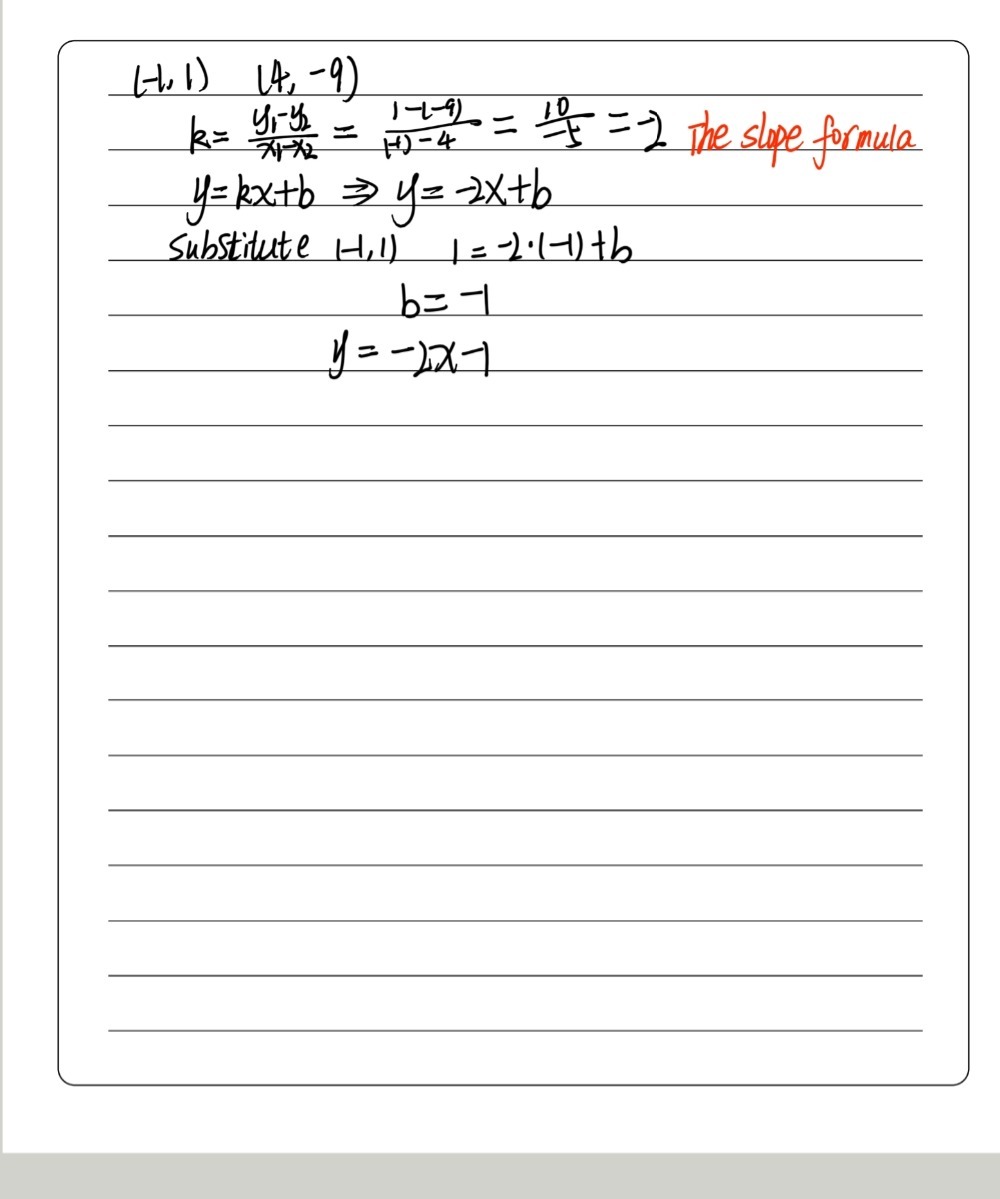 (-1, 1) (4, -9)
k = \frac{y_1-y_2}{x_1-x_2} = \frac{1-(-9)}{(-1)-4} = \frac{10}{-5} = -2 The slope formula
y = kx+b ⇒ y = -2x+b
substitute (-1, 1) 1 = -2·(-1)+b
b = -1
y = -2x-1